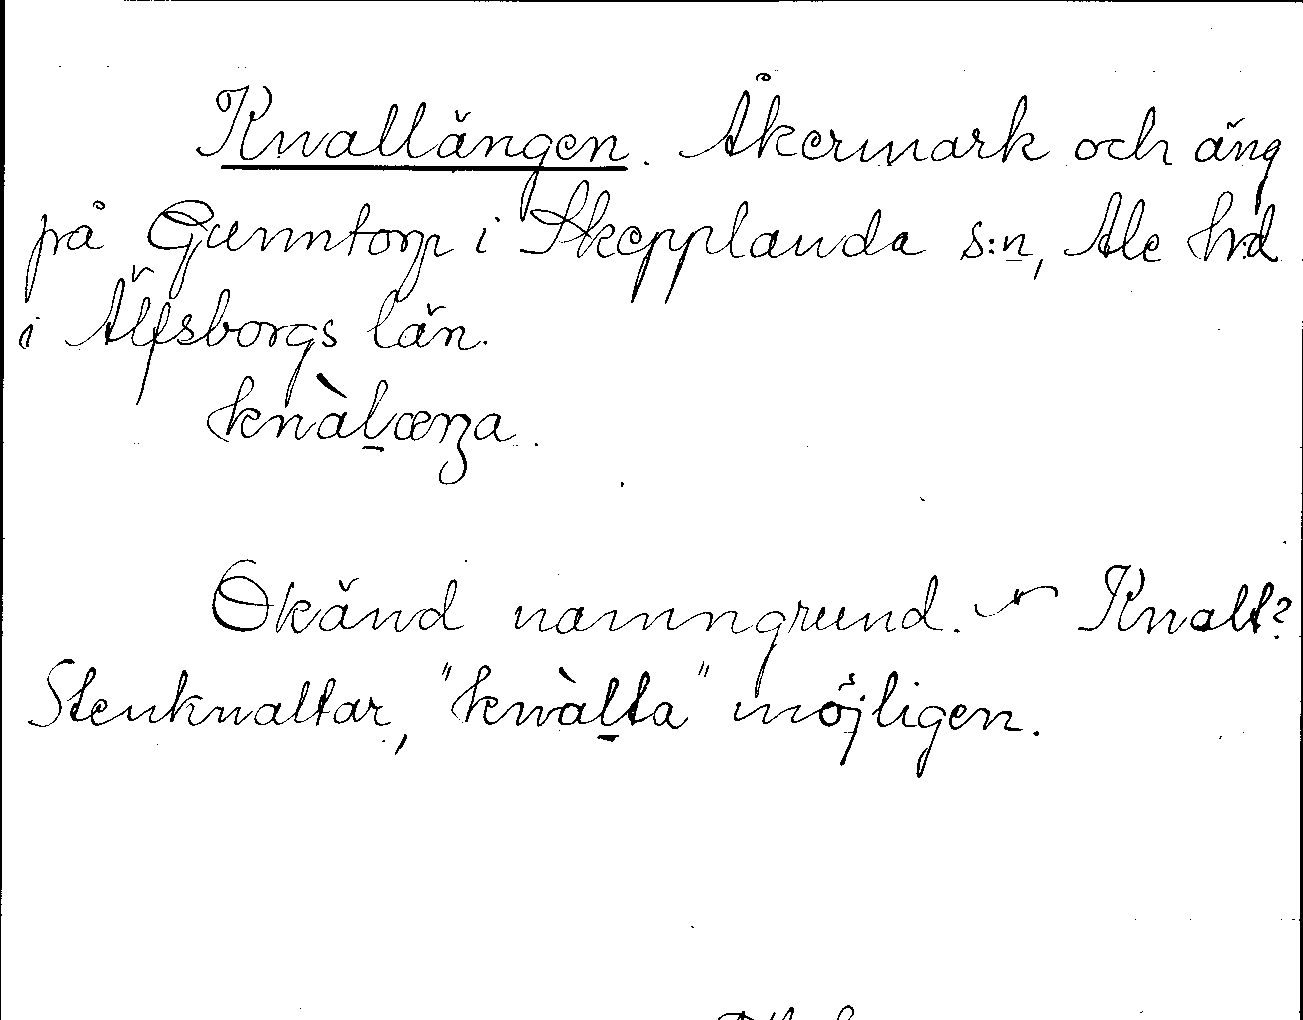 Knallängen. Åkermark och äng
på Gunntorp i Skepplanda s:n, Ale hd
i Älfsborgs län.
knàl̠æŋa.
Okänd namngrund. ~ Knalt?
Stenknaltar, "knàl̠ta" möjligen.